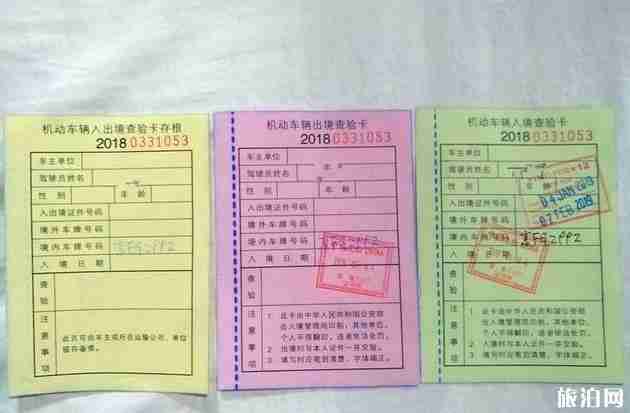 机动车辆入出境查验卡存根
2018 0331053
车主单位
驾驶员姓名
性别 年龄
入出境证件号码
境外车牌号码
境内车牌号码
入境日期
查验
注意事项
此页可由车主或所在运输公司、单位
留存备查。
机动车辆出境查验卡
2018 0331053
车主单位
驾驶员姓名
性别 年龄
入出境证件号码
境外车牌号码
境内车牌号码
入境日期
查验
注意事项
1 此卡由中华人民共和国公安部
出入境管理局印制，其他单位、
个人不得翻印，违者依法处罚。
2 出境时与本人证件一并交验。
3 填写时应笔划清楚、字体端正。
机动车辆入境查验卡
2018 0331053
车主单位
驾驶员姓名
性别 年龄
入出境证件号码
境外车牌号码
境内车牌号码
入境日期
04 JAN 2019
02 FEB 2019
查验
注意事项
1 此卡由中华人民共和国公安部
出入境管理局印制，其他单位、
个人不得翻印，违者依法处罚。
2 入境时与本人证件一并交验。
3 填写时应笔划清楚、字体端正。
旅泊网